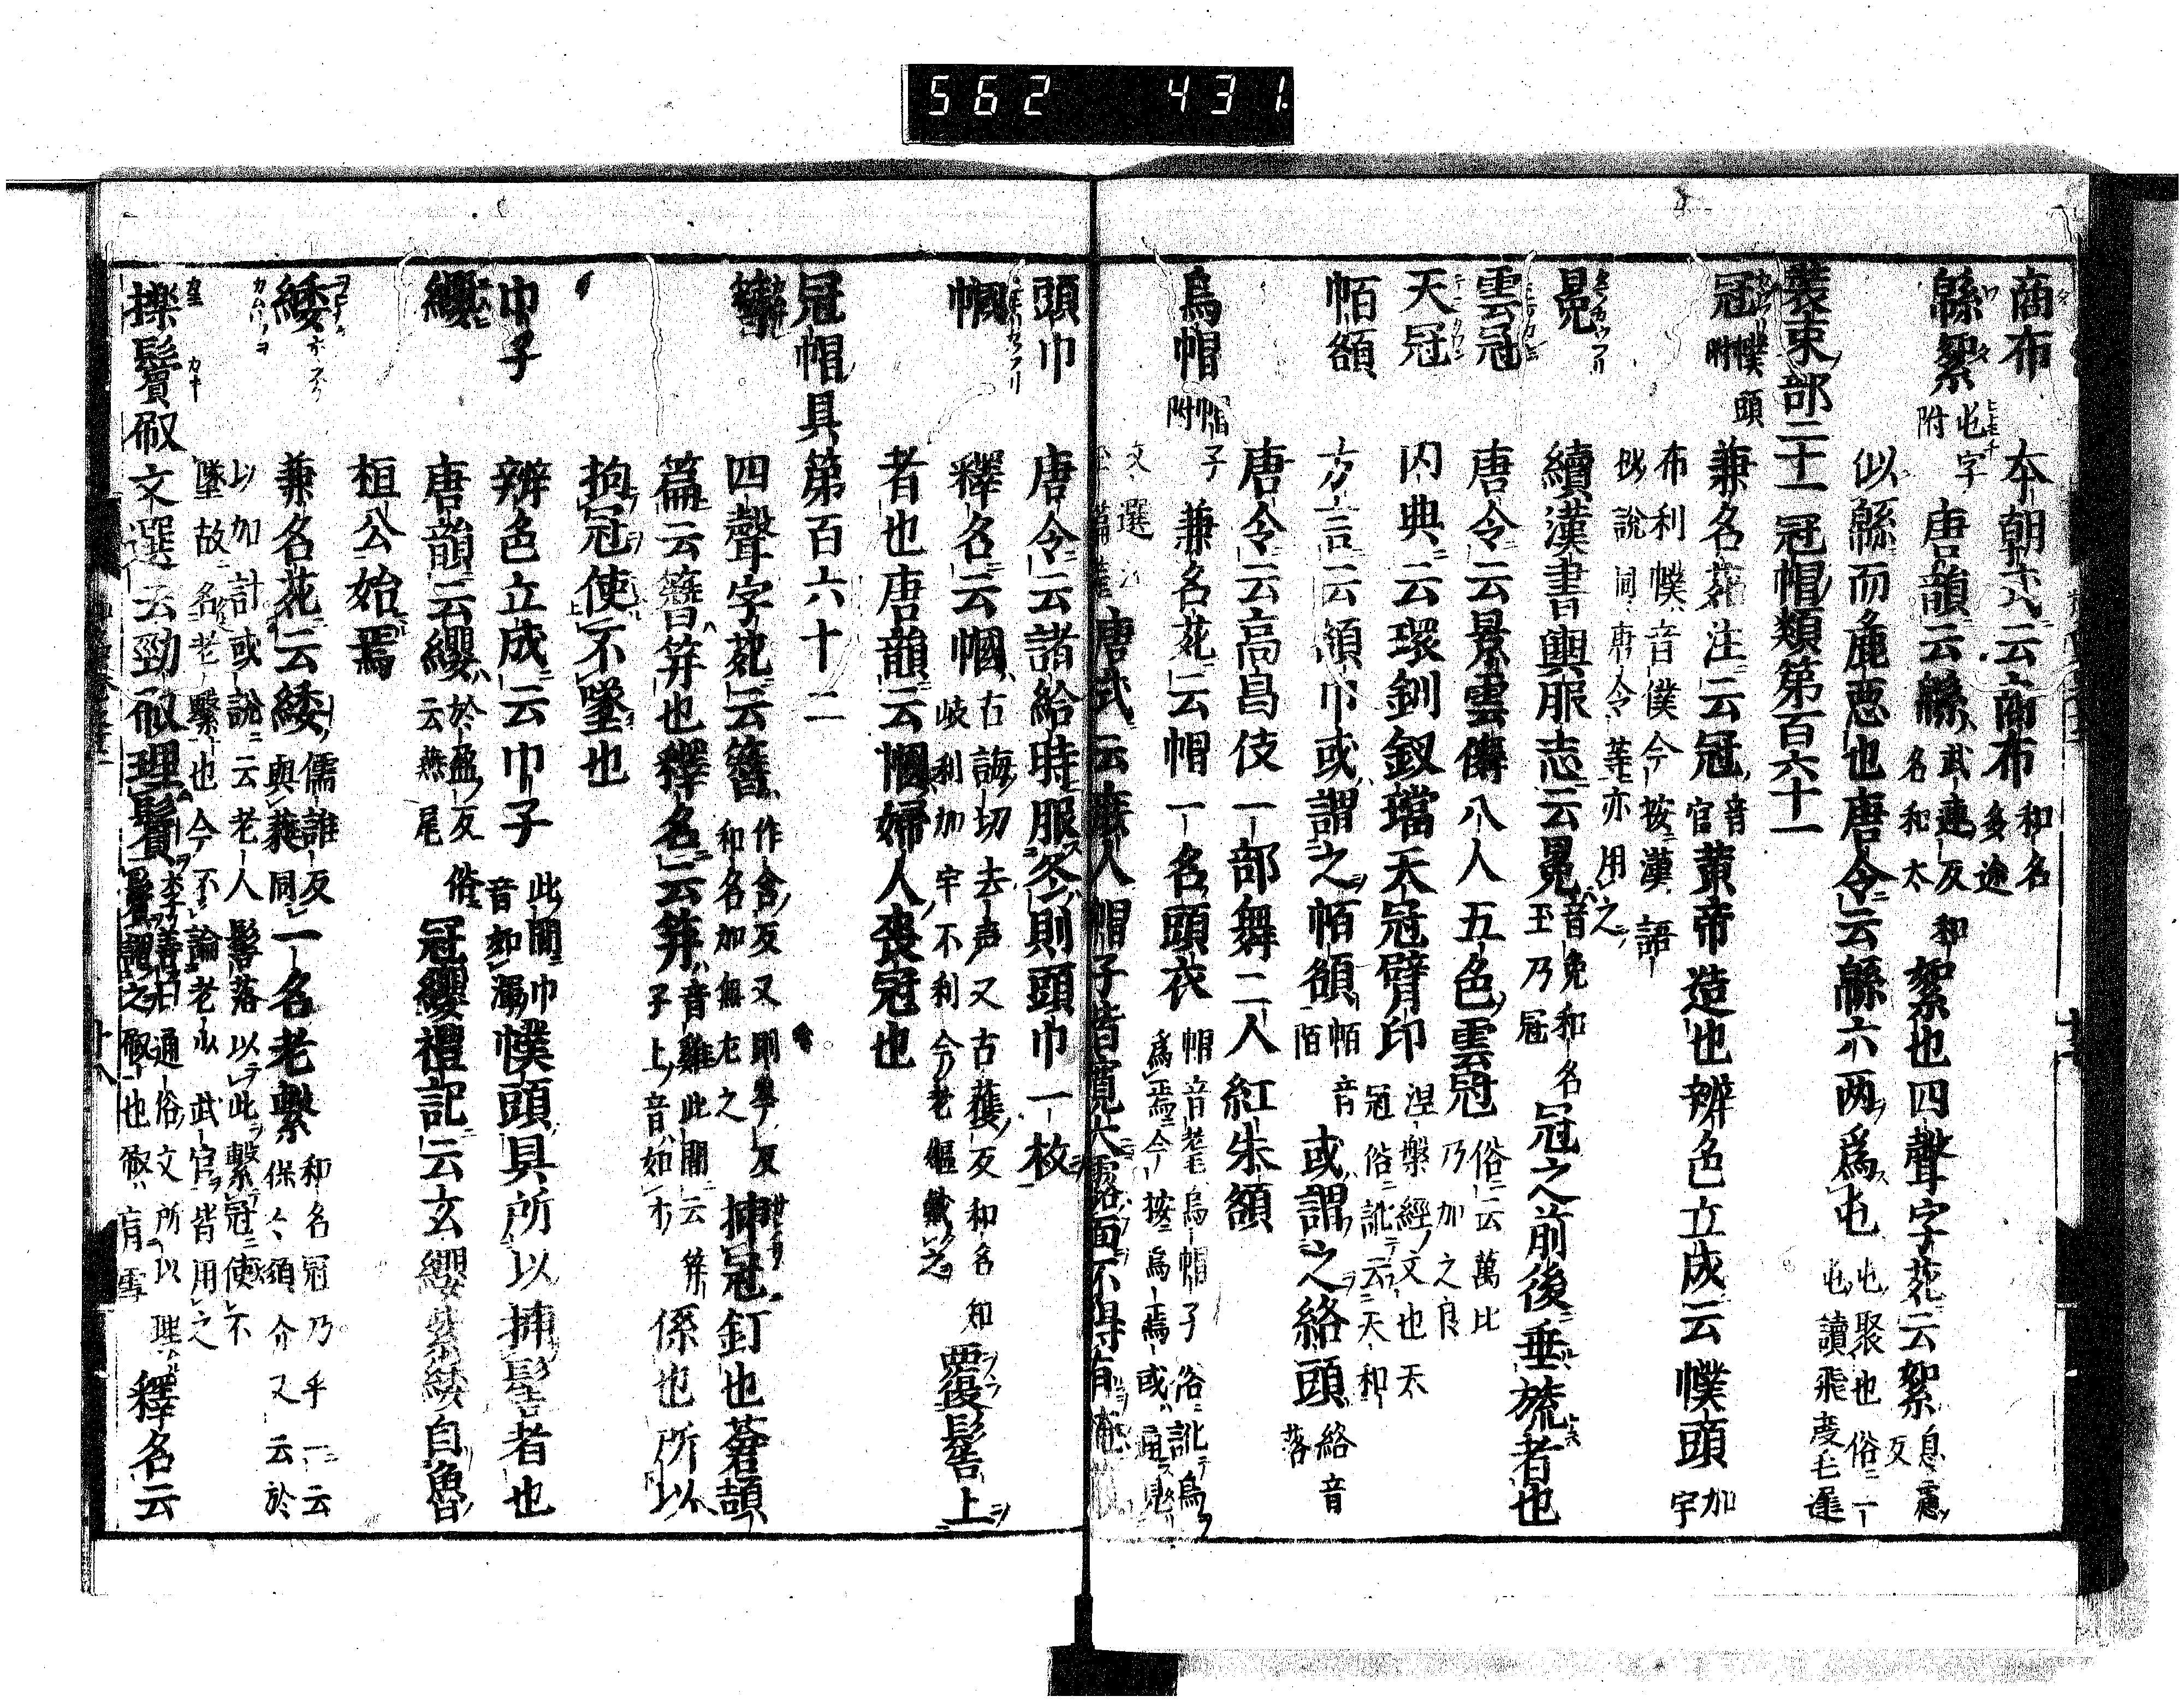 562 431
商布 本朝式云商布 和名多迩
緜絮 屯字附 唐韻云緜 武連反和名和太 絮也四聲字苑云絮 息慮反
似緜而麁惡也唐令云緜六两爲屯 屯聚也俗一屯讀飛
裝束部二十一 冠帽類第百六十一
冠 幞頭附 兼名苑注云冠 音官 黄帝造也辨色立成云幞頭 加宇
布利幞音僕今按漢語抄説同唐令等亦用之
冕 續漢書輿服志云冕 音免和名玉乃冠 冠之前後垂旒者也
雲冠 唐令云景雲儛八人五色雲冠 俗云萬比乃加之良
天冠 内典云環釧釵璫天冠臂印 涅槃經文也天冠俗訛云天和
帕額 方言云額巾或謂之帕額 帕音陌 或謂之絡頭 絡音落
唐令云高昌伎一部舞二人紅朱額
烏帽 帽子附 兼名苑云帽一名頭衣 帽音耄烏帽子俗訛烏爲焉今按烏焉或通見
文選 唐式云庶人帽子皆寬大露面不得有
頭巾 唐令云諸給時服冬則頭巾一枚
幗 釋名云幗 古誨切去声又古獲反和名知岐利加宇不利今老嫗戴之 覆髻上
者也唐韻云幗婦人喪冠也
冠帽具第百六十二
簪 四聲字苑云簪 作含反又則岑反和名加無左之 挿冠釘也蒼頡
篇云簪笄也釋名云笄 音雞此間云笄子上音如才 係也所以
拘冠使不墜也
巾子 辨色立成云巾子 此間巾音如渥 幞頭具所以挿髻者也
纓 唐韻云纓 於盈反俗云燕尾 冠纓禮記云玄纓紫緌自魯
桓公始焉
緌 兼名苑云緌 儒誰反與蕤同 一名老繫 和名冠乃乎一云保々須介又云於
以加計或説云老人髻落以此繫冠使不墜故名老繫也今不論老少武官皆用之
㩮鬢䈥 文選云勁䈥理鬢 李善曰通俗文所以理鬢謂之䈥也 釋名云
十八